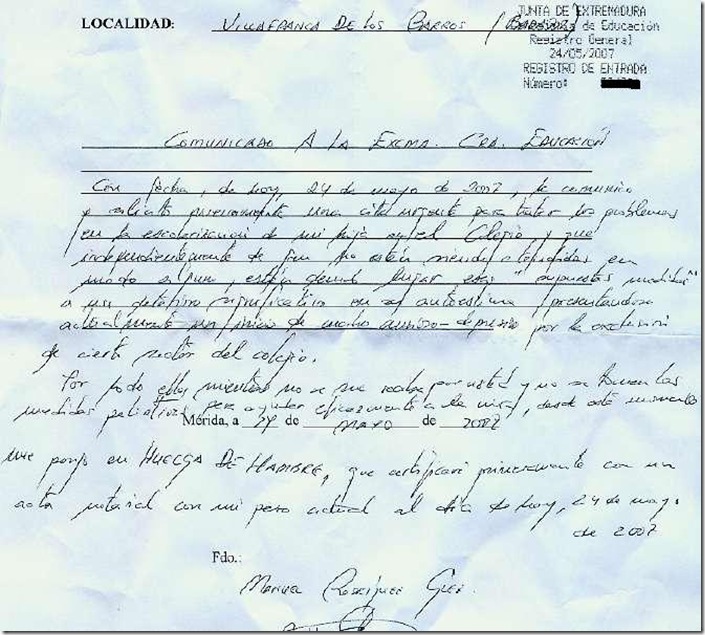 LOCALIDAD: VILLAFRANCA DE LOS BARROS (BADAJOZ)
JUNTA DE EXTREMADURA
de Educación
Registro General
24/05/2007
REGISTRO DE ENTRADA
Número:
COMUNICADO A LA EXCMA. CRA. EDUCACIÓN
Con fecha, de hoy, 24 de mayo de 2007, le comunico
y solicito nuevamente una cita urgente para tratar los problemas
en la escolarización de mi hija en el Colegio y que
independientemente de que no están siendo atendidas en
modo alguno, están dando lugar esas "supuestas medidas"
a un deterioro significativo en su autoestima, presentando
actualmente un inicio de ansioso-depresivo por la exclusión
de cierto sector del colegio.
Por todo ello, mientras no se me reciba por usted y no se tomen las
medidas paliativas para ayudar eficazmente a la niña, desde este momento
Mérida, a 24 de MAYO de 2007
me pongo en HUELGA DE HAMBRE, que certificaré primeramente con un
acta notarial con mi peso actual al día de hoy, 24 de mayo
de 2007
Fdo.:
Rodríguez